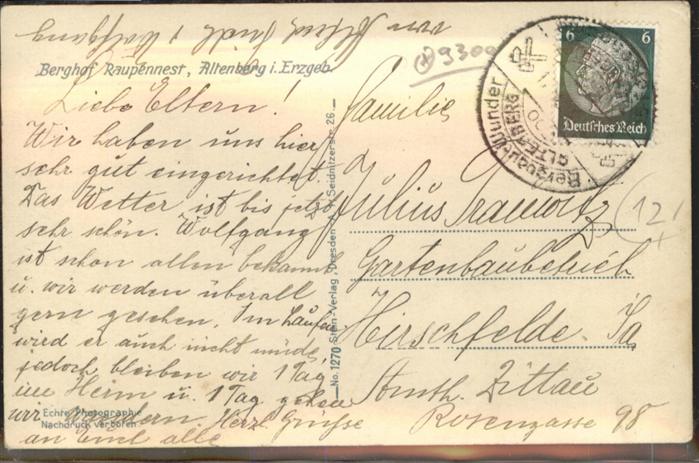 Berghof Raupennest, Altenberg i. Erzgeb.
Liebe Eltern!
Wir haben uns hier
sehr gut eingerichtet.
Das Wetter ist bis jetzt
sehr schön. Wolfgang
ist schon allen bekannt
u. wir werden überall
gern gesehen. Im Laufen
wird er auch nicht müde,
jedoch bleiben wir 1 Tag
im Heim u. 1 Tag gehen
wir wandern. Herzl. Grüsse
an Euch alle
von u. Wolfgang
Echte Photographie
Nachdruck verboten
No. 1270 Verlag, Dresden Seidnitzerstr. 26
9309
6 6
Deutsches Reich
ALTENBERG
Familie
Julius
Gartenbaubetrieb
Hirschfelde. Sa
Amth. Zittau
Rosengasse 98
12